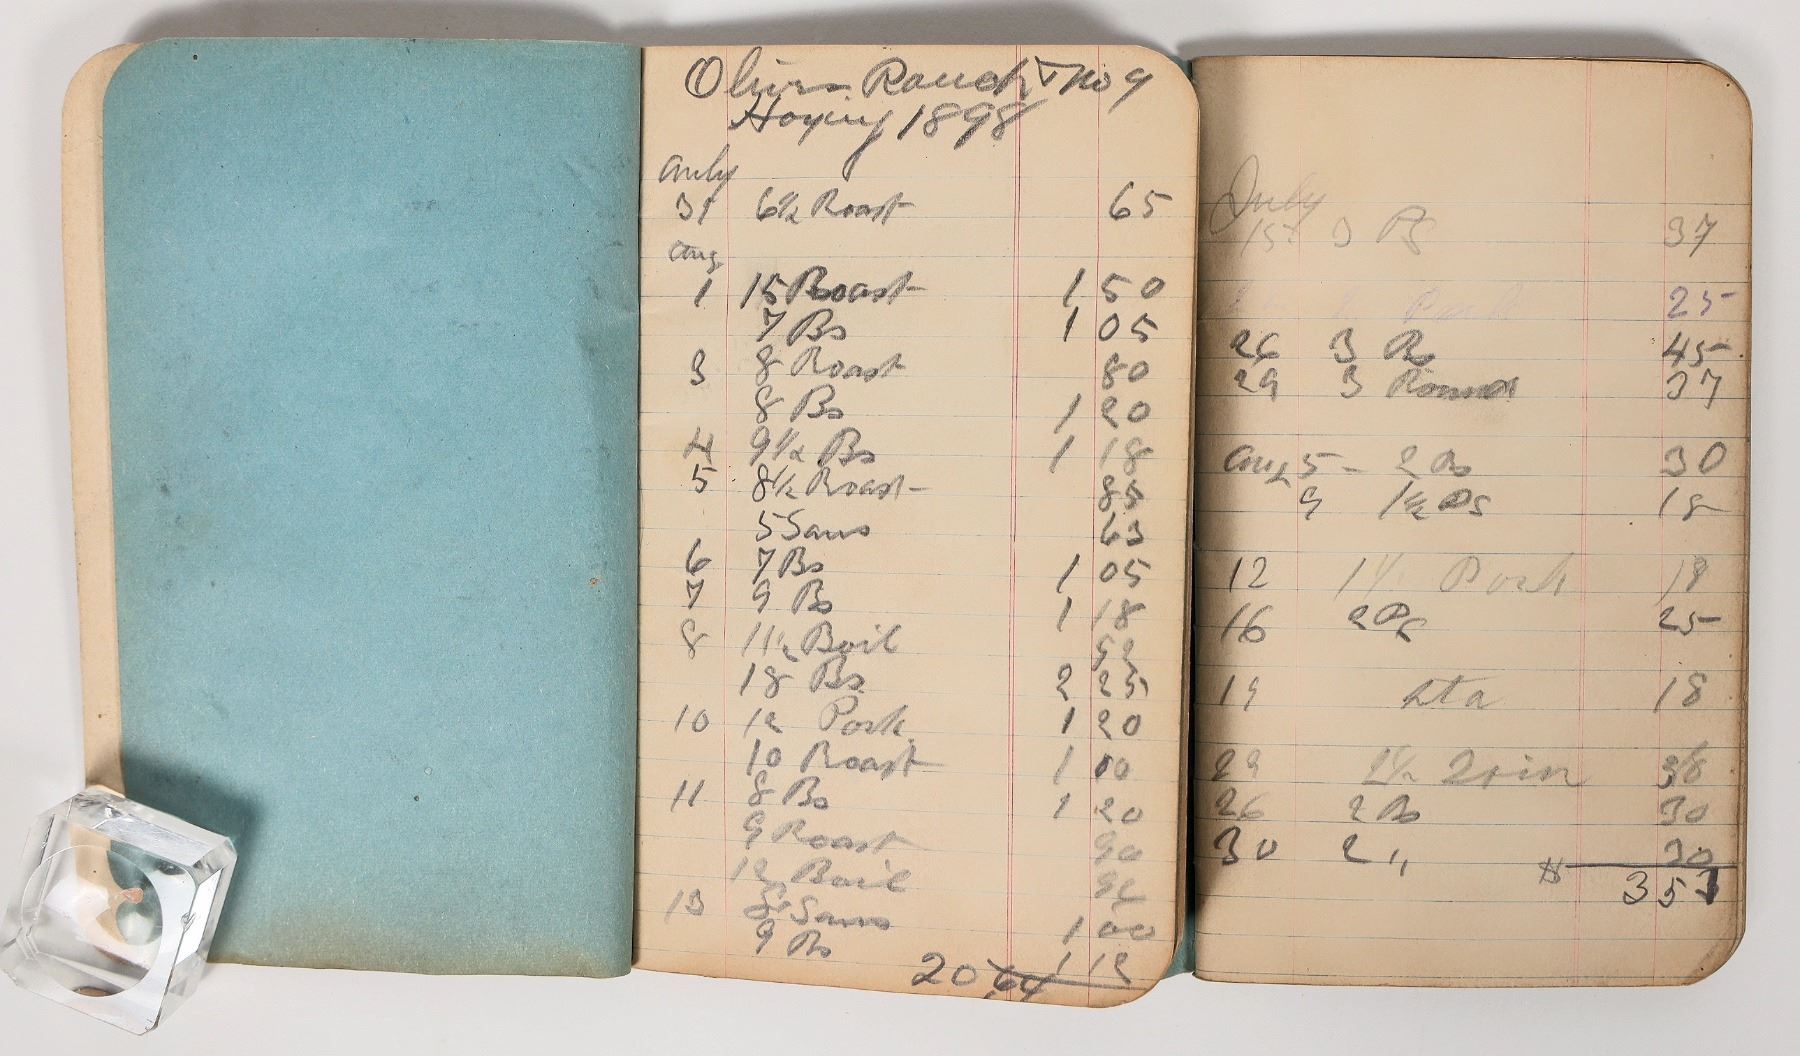 Olivers Ranch No 9
Haying 1898
July
31 6½ Roast 65
Aug
1 15 Roast 1 50
7 Bs 1 05
3 8 Roast 80
8 Bs 1 20
4 9½ Bs 1 18
5 8½ Roast 85
5 Saus 63
6 7 Bs 1 05
7 9 Bs 1 18
8 11½ Boil 52
18 Bs 2 25
10 12 Pork 1 20
10 Roast 1 00
11 8 Bs 1 20
9 Roast 90
12 Boil
13 8 Saus 1 00
9 Bs 1 12
20 64
July
15 3 37
25
26 3 Bs 45
29 3 Round 37
Aug 5 - 2 Bs 30
9 1½ 18
12 1½ Pork 18
16 2 25
19 18
29 38
26 2 Bs 30
30 2 " 30
$ 3 51